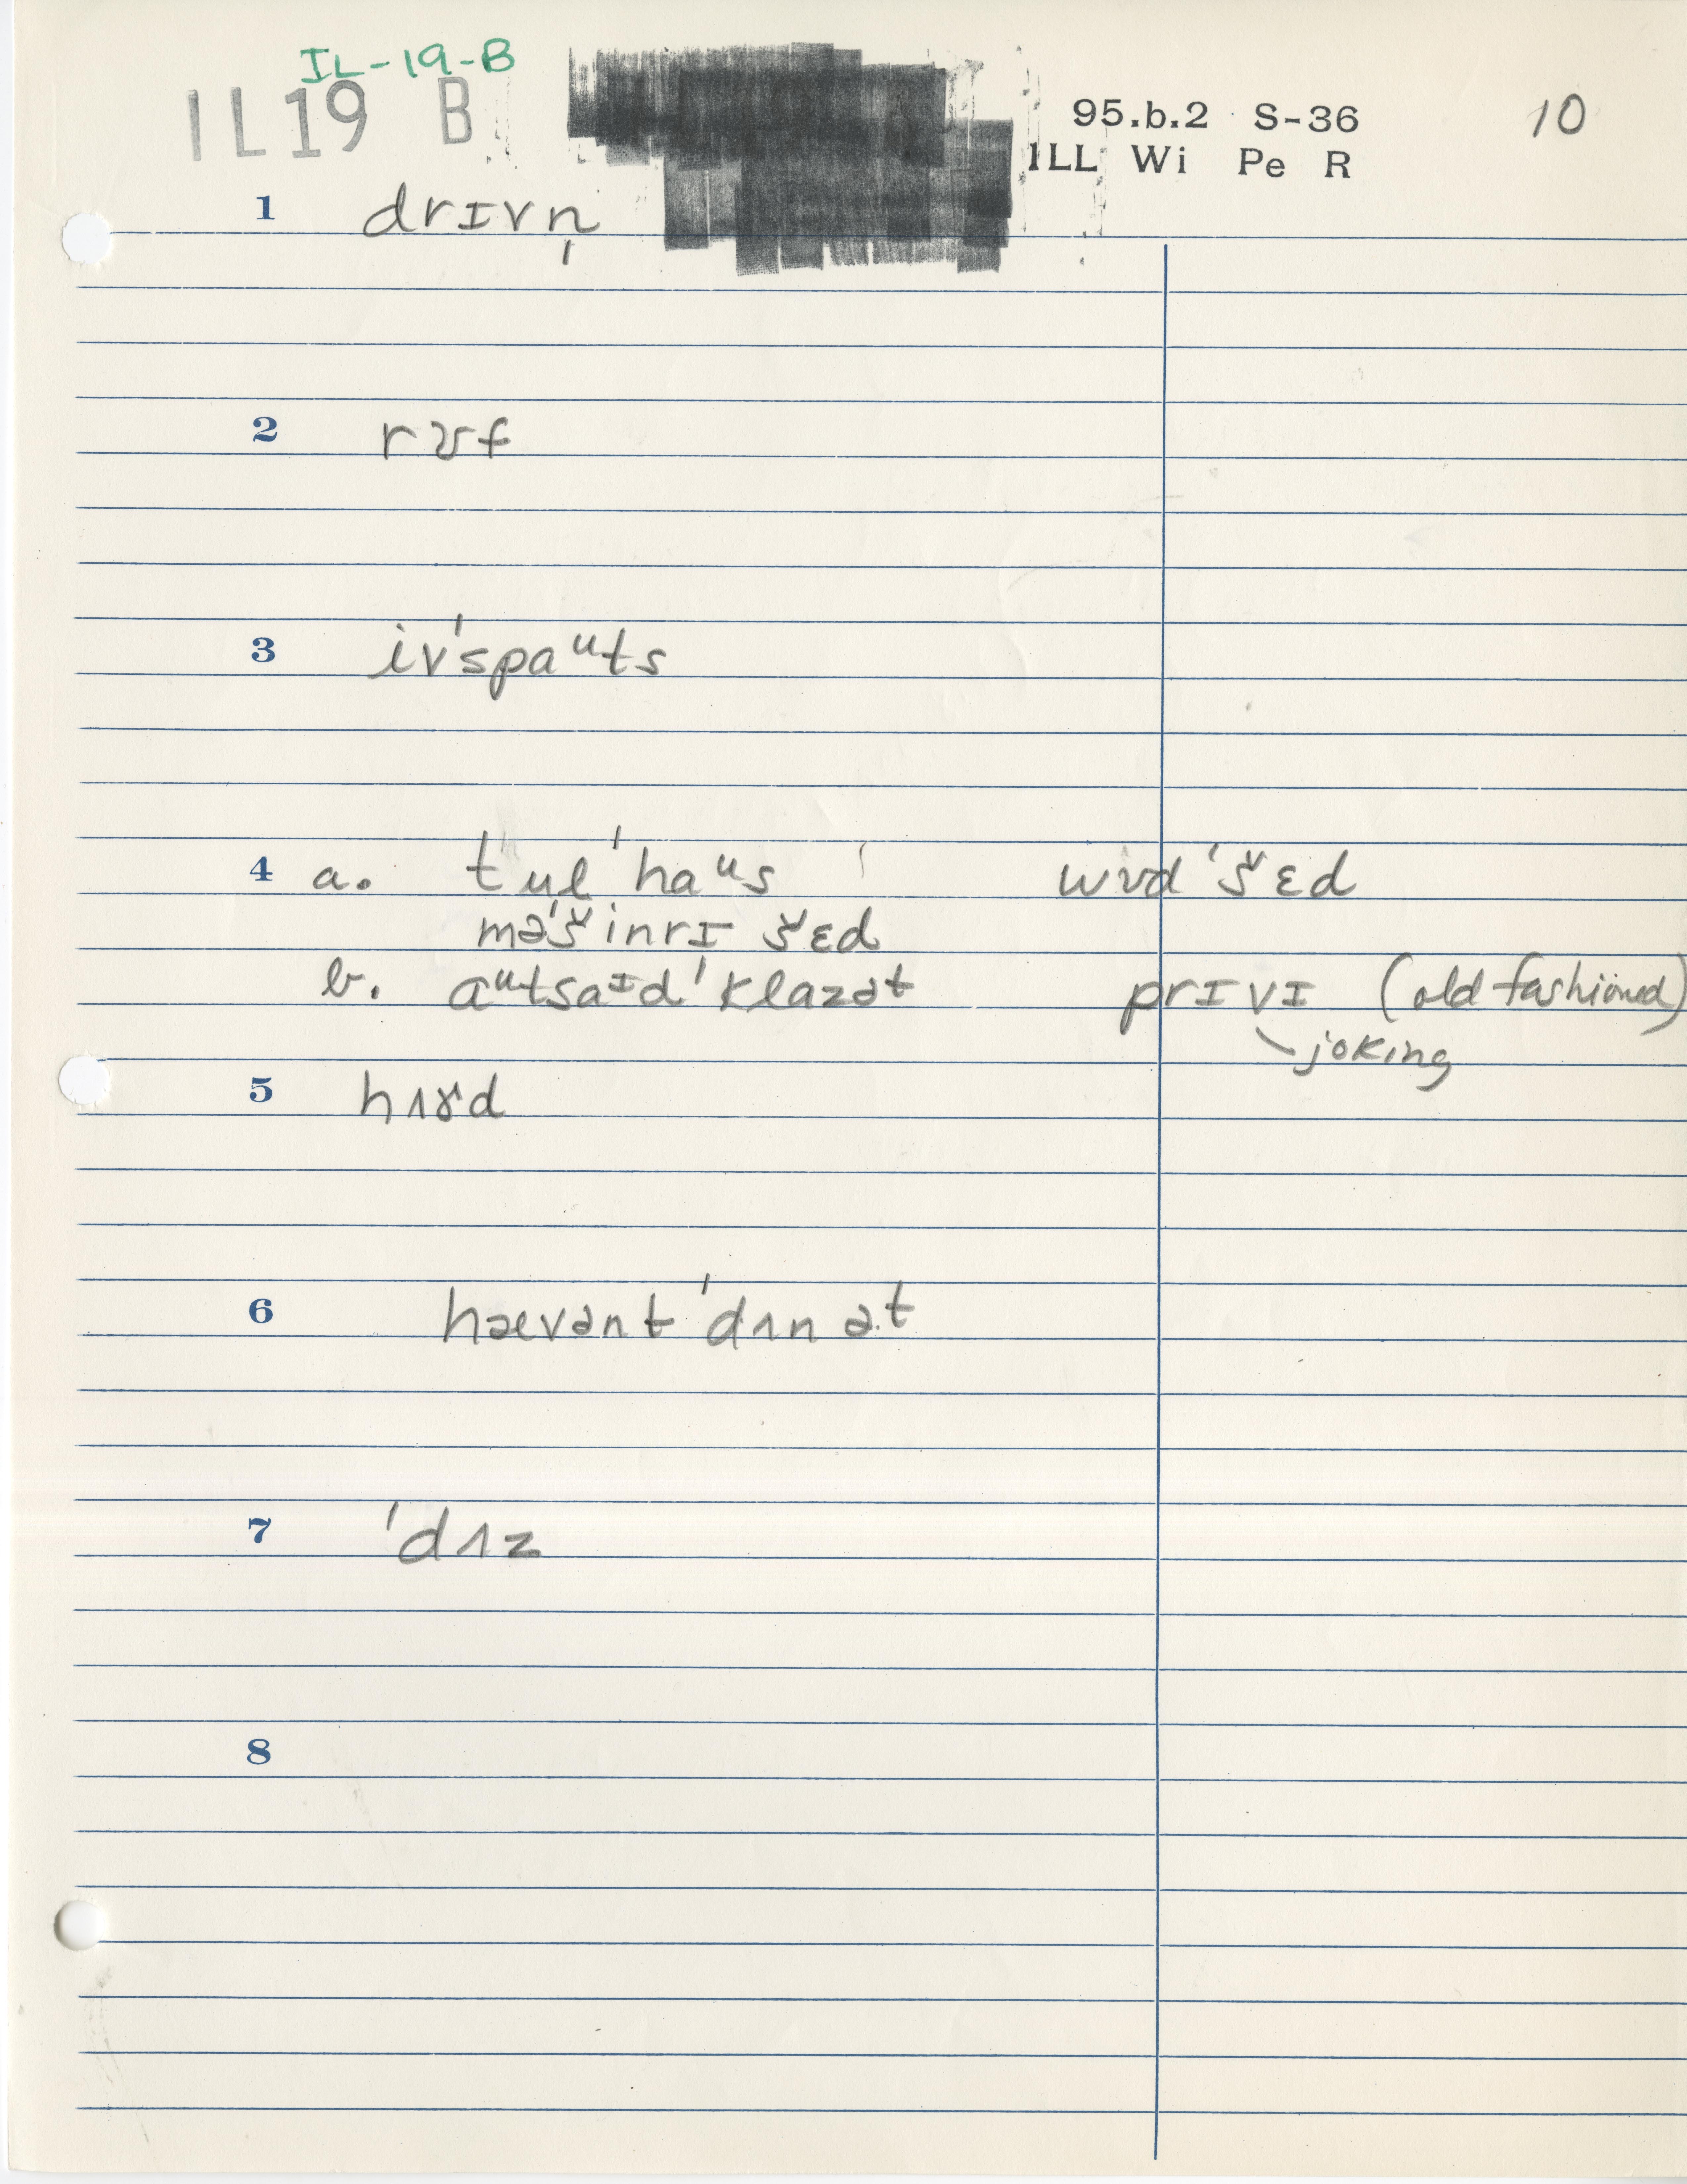 IL-19-B
IL19 B
95.b.2 S-36
ILL Wi Pe R
10
1 drɪvn̩
2 rʊf
3 iv'spaᵘts
4 a. tul'haᵘs wʊd'šɛd
mə'šinrɪ šɛd
b. aᵘtsaɪd'klazət prɪvɪ (old fashioned)
joking
5 hɝd
6 hævənt'dʌn ət
7 'dʌz
8